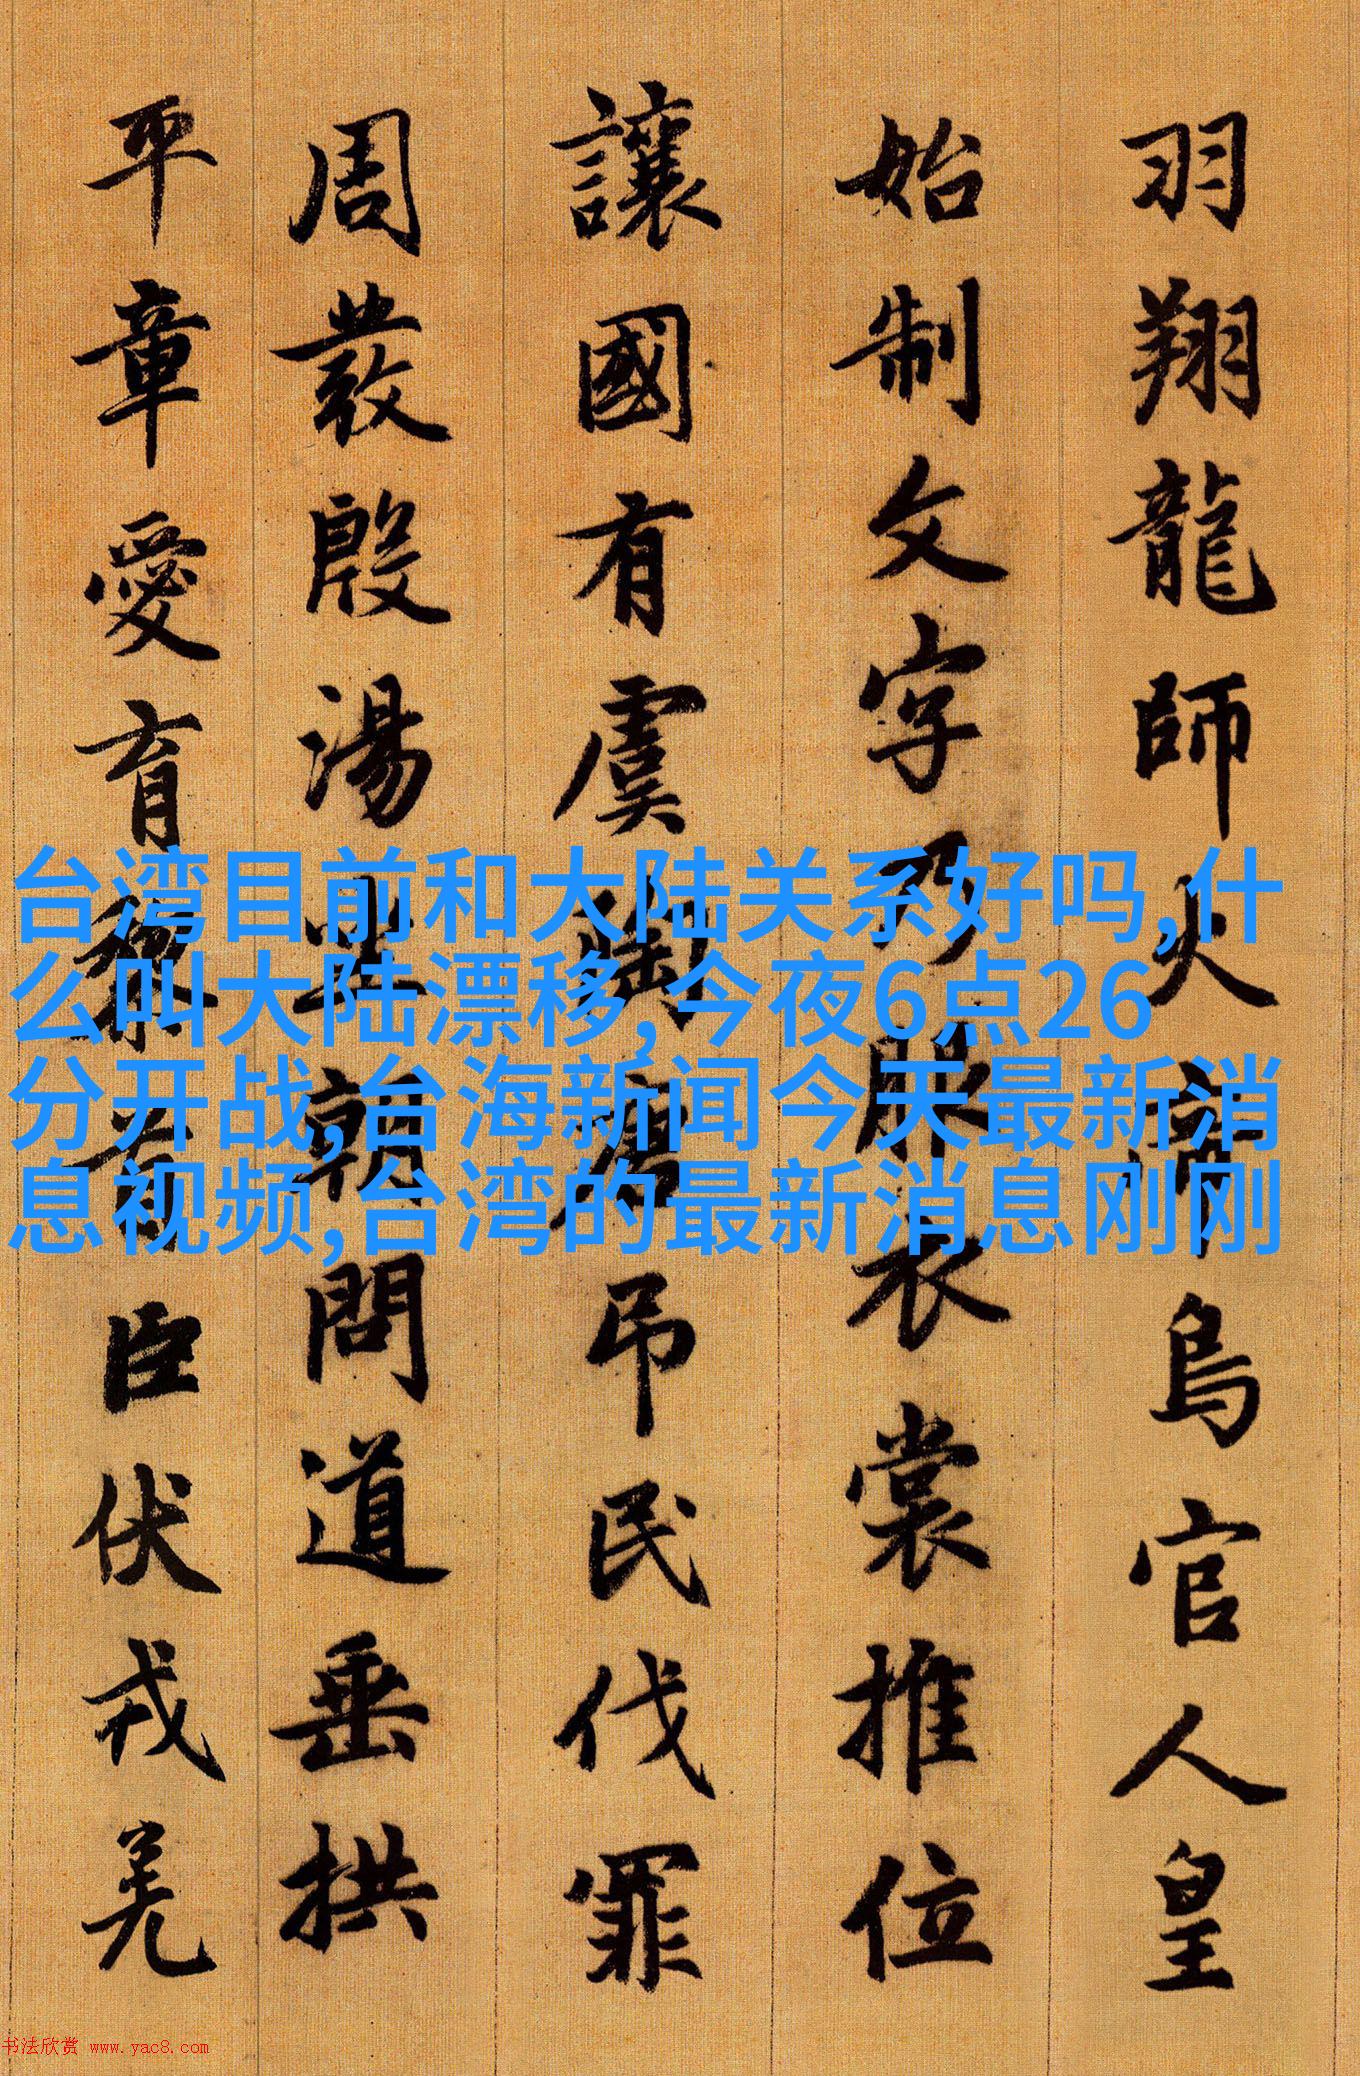 羽翔龍師火帝鳥官人皇
始制文字乃服衣裳推位
讓國有虞陶唐吊民伐罪
周發殷湯坐朝問道垂拱
平章愛育黎首臣伏戎羌
台湾目前和大陆关系好吗,什
么叫大陆漂移,今夜6点26
分开战,台海新闻今天最新消
息视频,台湾的最新消息刚刚
书法欣赏 www.yac8.com